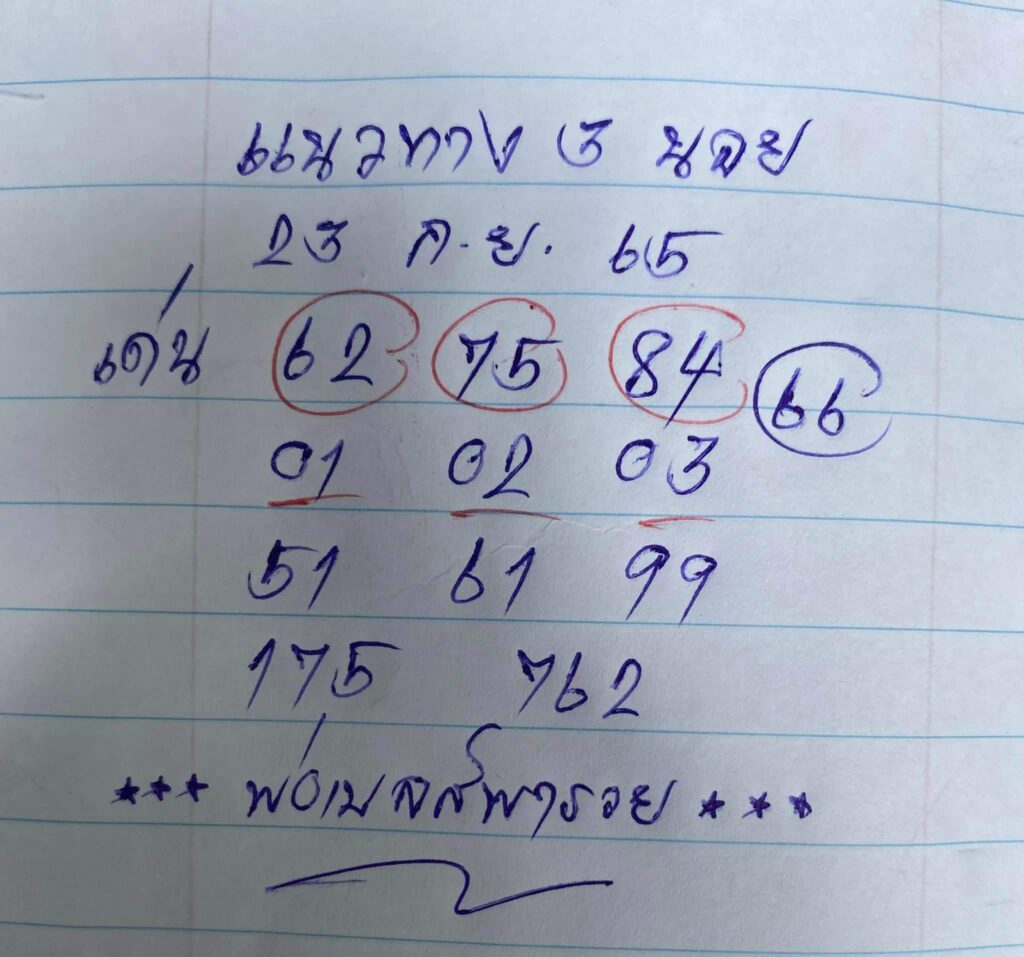 แนวทาง 3 นอย
23 ก.ย. 65
เด่น 62 75 84 66
01 02 03
51 61 99
175 762
*** พ่อเบลล์พารวย ***